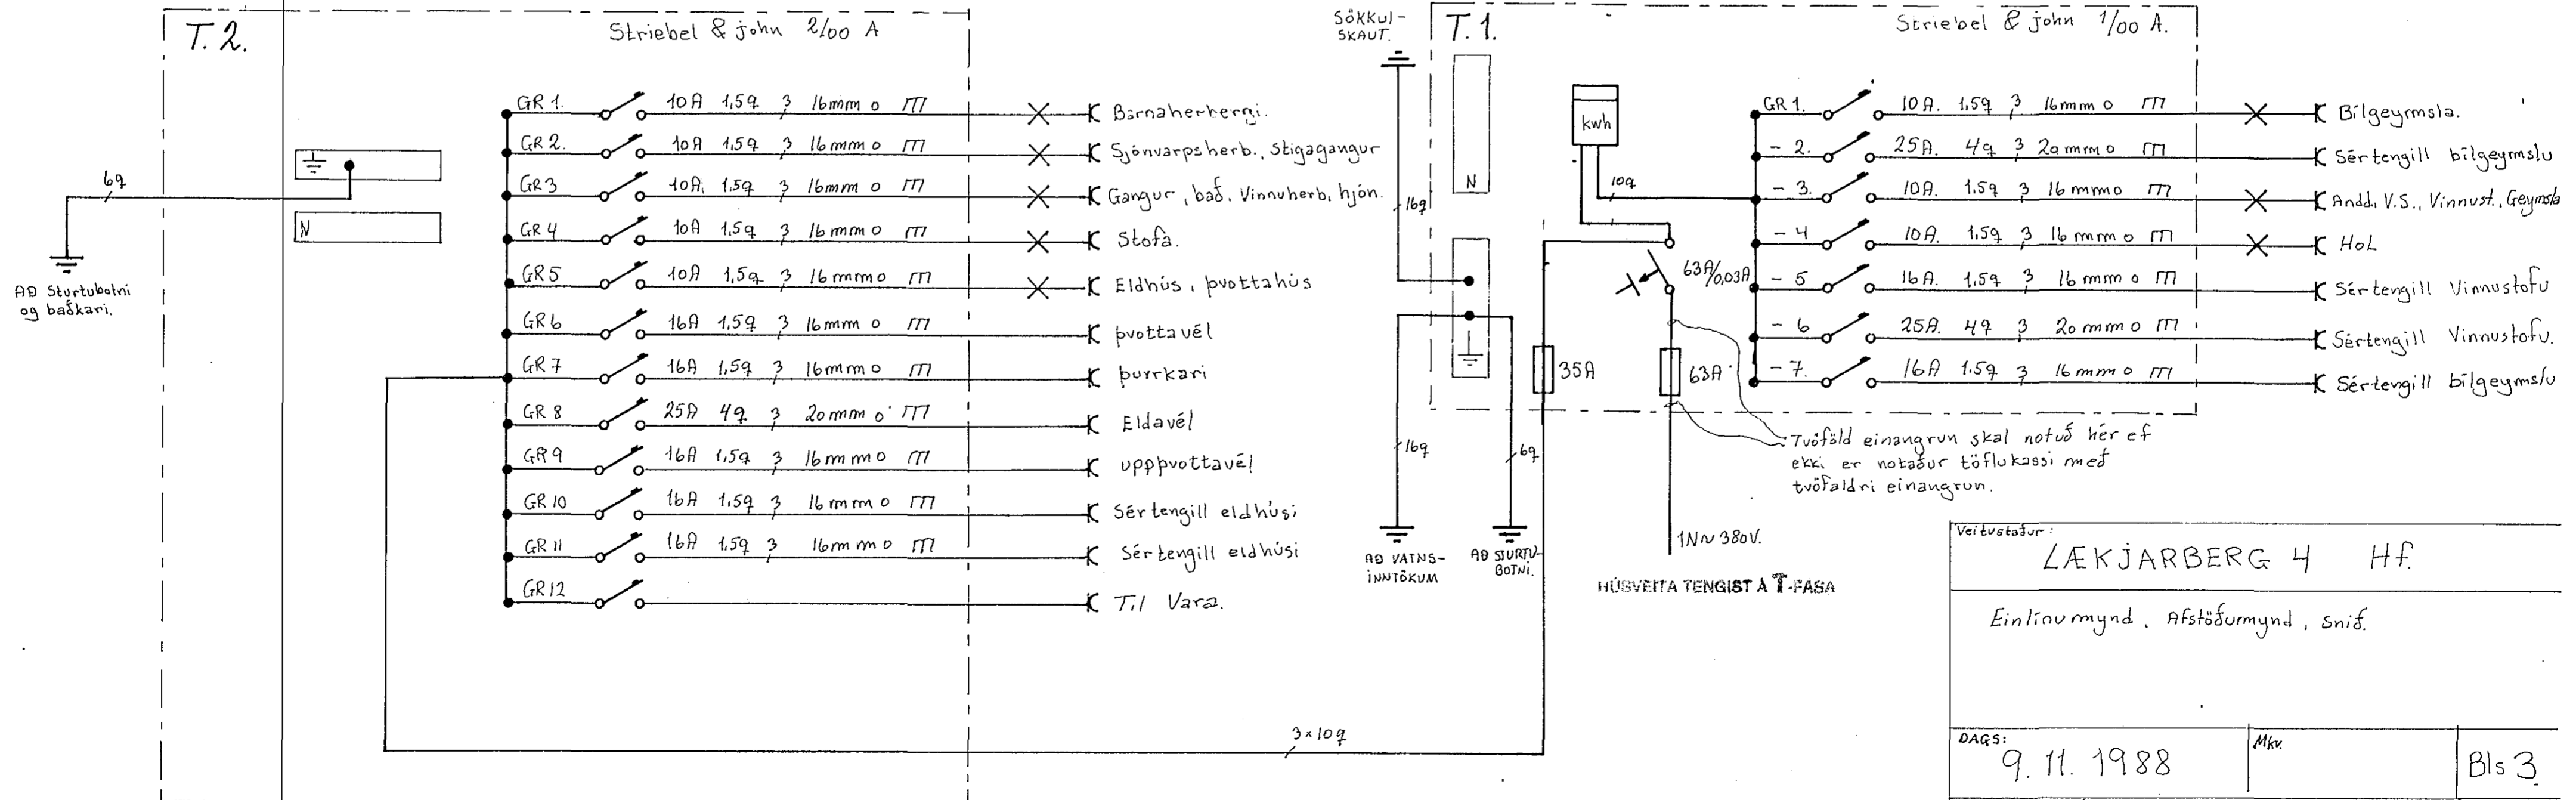 T. 2.
Striebel & john 2/00 A
GR 1. 10A 1,5q 3 16mm o m Barnaherbergi.
GR 2. 10A 1,5q 3 16mm o m Sjónvarpsherb., Stigagangur
GR 3 10A, 1,5q 3 16mm o m Gangur, bað, Vinnuherb, hjón.
GR 4 10A 1,5q 3 16mm o m Stofa.
GR 5 10A 1,5q 3 16mm o m Eldhús, þvottahús
GR 6 16A 1,5q 3 16mm o m þvottavél
GR 7 16A 1,5q 3 16mm o m þurrkari
GR 8 25A 4q 3 20mm o m Eldavél
GR 9 16A 1,5q 3 16mm o m uppþvottavél
GR 10 16A 1,5q 3 16mm o m Sértengill eldhúsi
GR 11 16A 1,5q 3 16mm o m Sértengill eldhúsi
GR 12 Til Vara.
N
6q
AÐ Sturtubotni
og baðkari.
3x10q
SÖKKUL-
SKAUT.
T. 1.
Striebel & john 1/00 A.
N
kwh
10q
16q
63A/0,03A
35A
63A
16q
6q
AÐ VATNS-
INNTÖKUM
AÐ STURTU-
BOTNI.
1N~380V.
HÚSVEITA TENGIST Á T-FASA
GR 1. 10A. 1,5q 3 16mm o m Bílgeymsla.
- 2. 25A. 4q 3 20mm o m Sértengill bílgeymslu
- 3. 10A. 1.5q 3 16mm o m Andd., V.S., Vinnust., Geymsla
- 4 10A. 1.5q 3 16mm o m HoL
- 5 16A. 1.5q 3 16mm o m Sértengill Vinnustofu
- 6 25A. 4q 3 20mm o m Sértengill Vinnustofu.
- 7. 16A 1.5q 3 16mm o m Sértengill bílgeymslu
Tvöföld einangrun skal notuð hér ef
ekki er notaður töflukassi með
tvöfaldri einangrun.
Veitustaður:
LÆKJARBERG 4 Hf.
Einlínumynd, Afstöðumynd, Snið.
DAGS:
9. 11. 1988
Mkv.
Bls 3